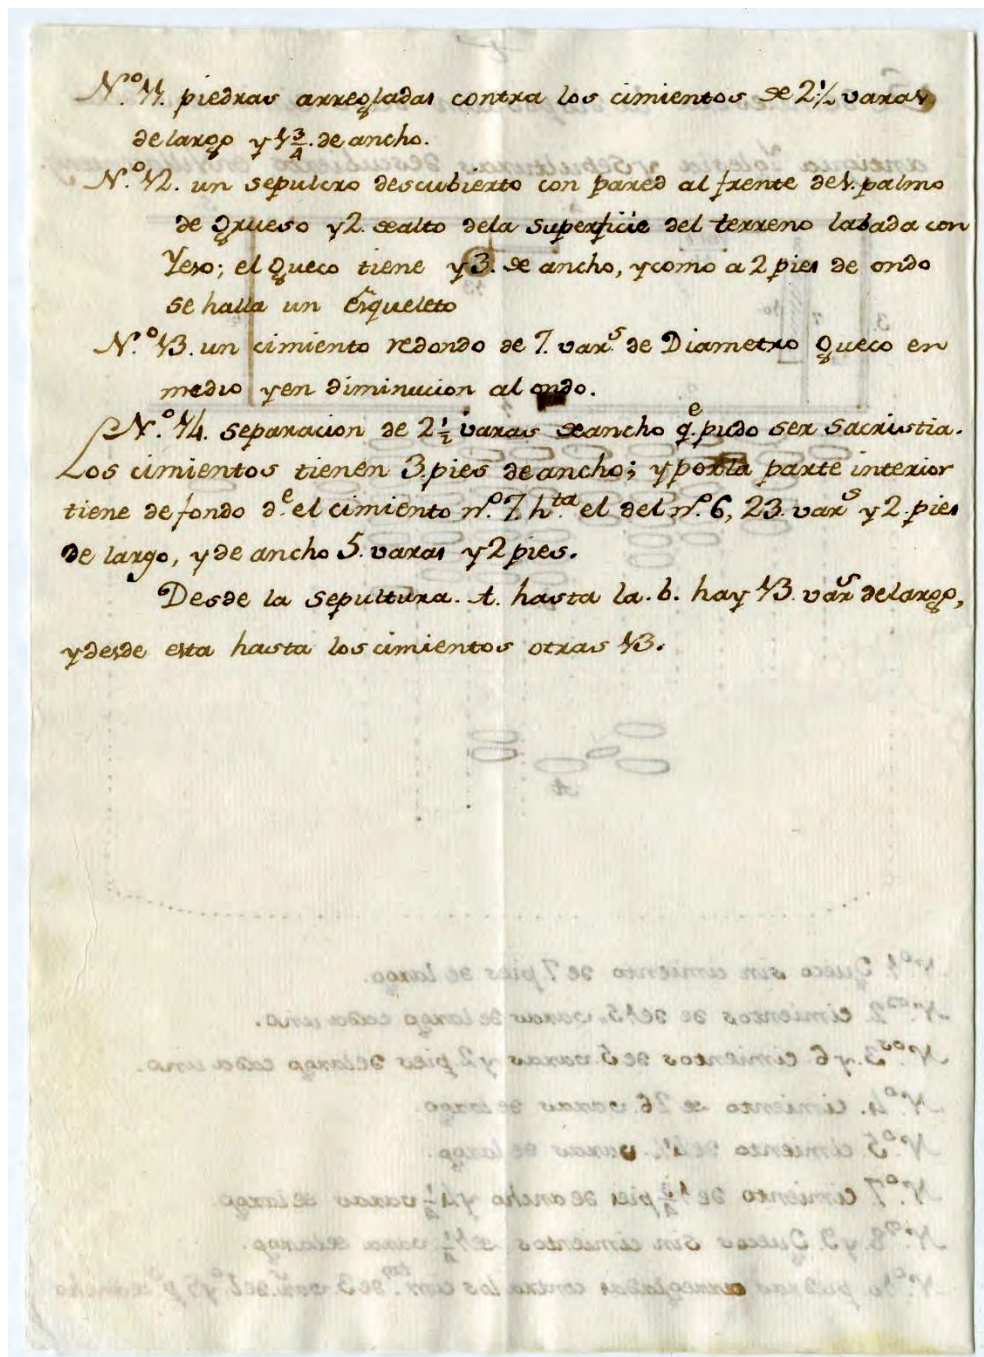 N.º 11. piedras arregladas contra los cimientos de 2 1/2 varas
de largo y 1 3/4. de ancho.
N.º 12. un sepulcro descubierto con pared al frente de 1. palmo
de Grueso y 2. de alto dela superficie del terreno labada con
Yeso; el Gueco tiene y 3. de ancho, y como a 2 pies de ondo
se halla un Esqueleto
N.º 13. un cimiento redondo de 7. var.s de Diametro Gueco en
medio y en diminucion al ondo.
N.º 14. separacion de 2 1/2 varas de ancho q.e pudo ser sacristia.
Los cimientos tienen 3 pies de ancho; y por la parte interior
tiene de fondo d.e el cimiento n.º 7. h.ta el del n.º 6, 23. var.s y 2. pies
de largo, y de ancho 5. varas y 2 pies.
Desde la sepultura. A. hasta la. b. hay 13. var.s de largo,
y desde esta hasta los cimientos otras 13.